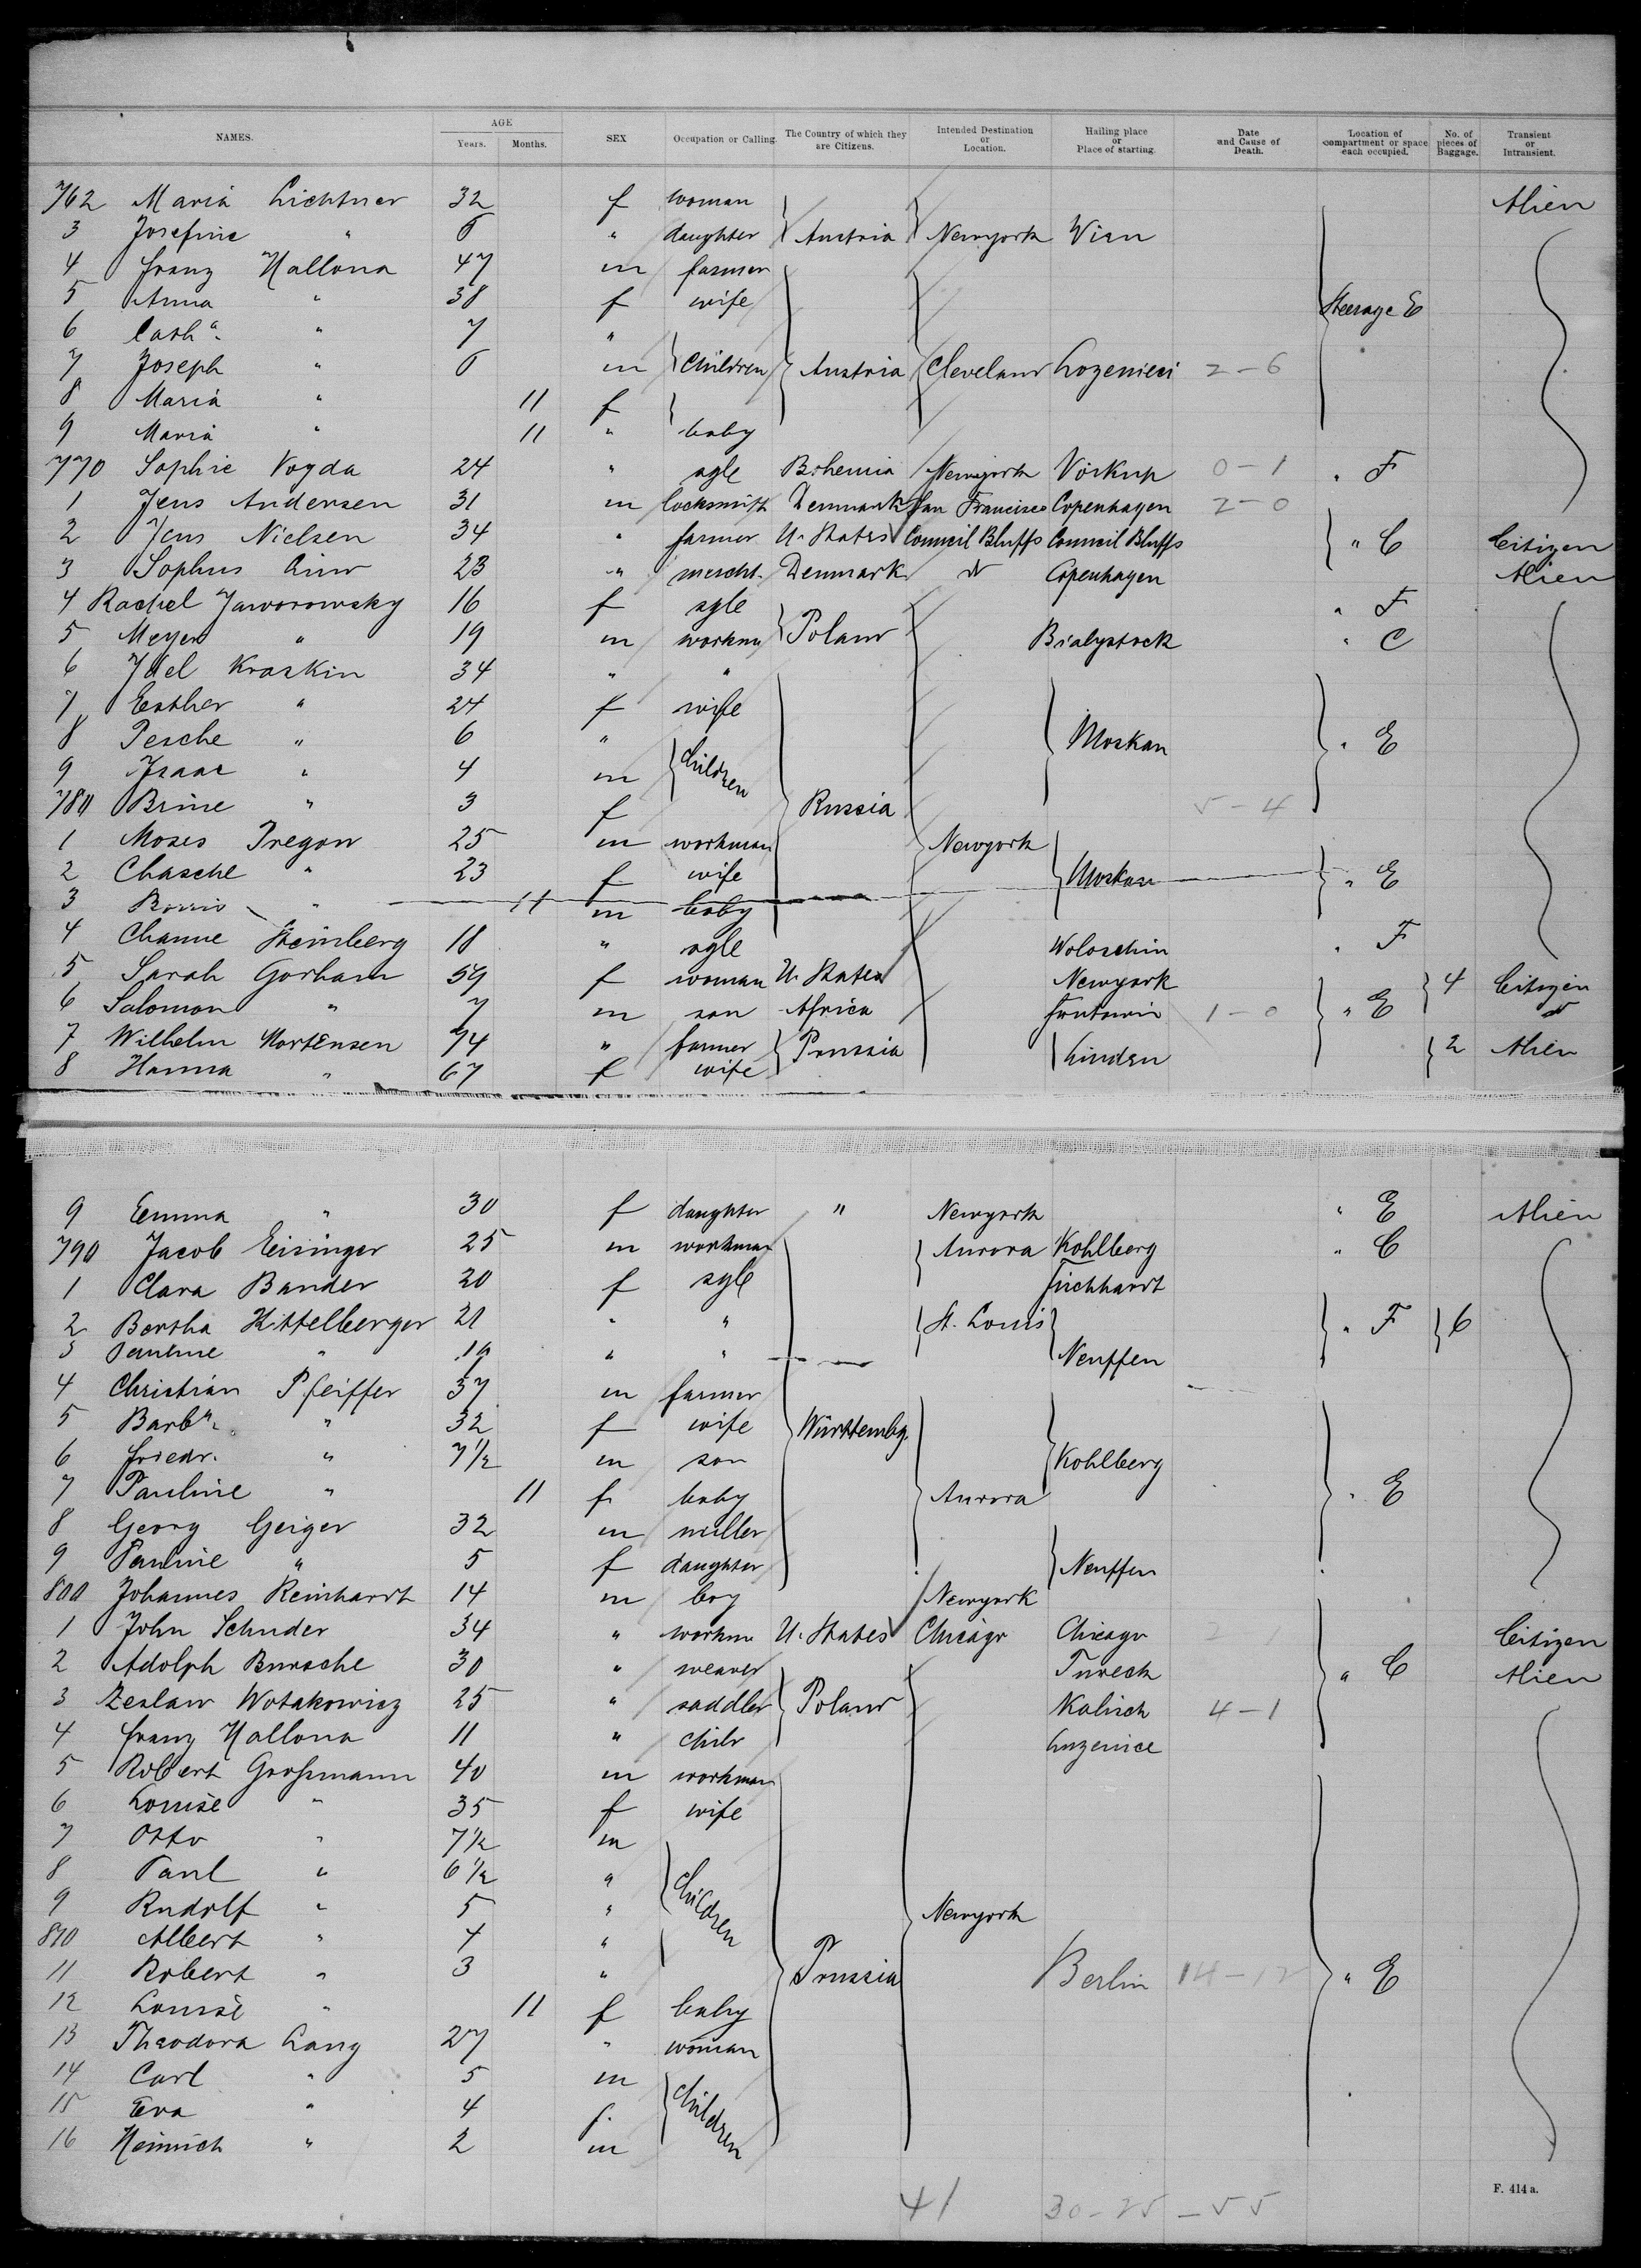 NAMES. AGE Years. Months. SEX Occupation or Calling. The Country of which they are Citizens. Intended Destination or Location. Hailing place or Place of starting. Date and Cause of Death. Location of compartment or space each occupied. No. of pieces of Baggage. Transient or Intransient.
762 Maria Lichtner 32 f woman Alien
3 Josefine " 6 " daughter Austria Newyork Wien
4 Franz Hallona 47 m farmer
5 Anna " 38 f wife Steerage E
6 Cath a. " 7 "
7 Joseph " 6 m Children Austria Cleveland 2-6
8 Maria " 11 f
9 Maria " 11 " baby
770 Sophie Vogda 24 " sgle Bohemia Newyork 0-1 " F
1 Jens Andersen 31 m locksmith Denmark San Francisco Copenhagen 2-0
2 Jens Nielsen 34 " farmer U. States Council Bluffs Council Bluffs " C Citizen
3 Sophus Lind 23 " mercht. Denmark Copenhagen Alien
4 Rachel Jaworowsky 16 f sgle " F
5 Meyer " 19 m workm Poland Bialystock " C
6 Joel Kraskin 34 " "
7 Esther " 24 f wife
8 Pesche " 6 " Children Moskau " E
9 Isaac " 4 m
780 Brine " 3 f Russia 5-4
1 Moses Pregon 25 m workman Newyork
2 Chasche " 23 f wife Moskau " E
3 " 11 m baby
4 Channe Steinberg 18 " sgle Woloschin " F
5 Sarah Gorham 59 f woman U. States Newyork 4 Citizen
6 Salomon " 7 m son Africa 1-0 " E
7 Wilhelm Mortensen 74 " farmer Prussia Linden 2 Alien
8 Hanna " 67 f wife
9 Emma " 30 f daughter " Newyork " E Alien
790 Jacob Eisinger 25 m workman Aurora Kohlberg " C
1 Clara Bander 20 f sgle
2 Bertha Kittelberger 21 " " St. Louis " F 6
3 Pauline " 19 " " Neuffen
4 Christian Pfeiffer 37 m farmer
5 Barba. " 32 f wife Württembg.
6 Friedr. " 7½ m son Kohlberg
7 Pauline " 11 f baby Aurora " E
8 Georg Geiger 32 m miller
9 Pauline " 5 f daughter Neuffen
800 Johannes Reinhardt 14 m boy Newyork
1 John Schuder 34 " workm U. States Chicago Chicago Citizen
2 Adolph Bursche 30 " weaver Tureck " C Alien
3 Zeslaw Wotakowicz 25 " saddler Poland Kalisch 4-1
4 Franz Hallona 11 " child Luzenice
5 Robert Großmann 40 m workman
6 Louise " 35 f wife
7 Otto " 7½ m
8 Paul " 6½ " Children
9 Rudolf " 5 " Newyork
810 Albert " 4 "
11 Robert " 3 " Prussia Berlin 14-12 " E
12 Louise " 11 f baby
13 Theodora Lang 27 " woman
14 Carl " 5 m Children
15 Eva " 4 f.
16 Heinrich " 2 m
41 30-25-55
F. 414 a.